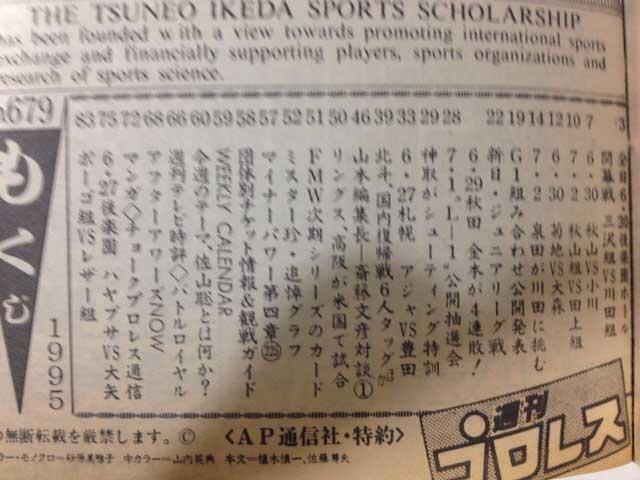 THE TSUNEO IKEDA SPORTS SCHOLARSHIP
has been founded with a view towards promoting international sports
exchange and financially supporting players, sports organizations and
research of sports science.
679
もくじ
1995
全日6・30後楽園ホール
開幕戦 三沢組VS川田組 3
6・30 秋山VS小川 7
7・2 秋山組VS田上組 10
6・30 菊地VS大森 12
7・2 泉田が川田に挑む 14
G1組み合わせ公開発表 19
新日・ジュニアリーグ戦 22
6・29秋田 金本が4連敗!
7・1“L―1”公開抽選会 28
神取がシューティング特訓 29
6・27札幌 アジャVS豊田 33
北斗、国内復帰戦6人タッグ 39
山本編集長―斎藤文彦対談① 46
リングス、高阪が米国で試合 50
FMW次期シリーズのカード 51
ミスター珍・追悼グラフ 52
マイナーパワー第四章㉒ 57
団体別チケット情報&観戦ガイド 58
WEEKLY CALENDAR 59
今週のテーマ、佐山聡とは何か? 60
週刊テレビ時評◇バトルロイヤル 66
アフターアワーズNOW 68
マンガ◇チョークプロレス通信 72
6・27後楽園 ハヤブサVS大矢 75
ボーゴ組VSレザー組 83
の無断転載を厳禁します。© 〈AP通信社・特約〉
ラー・モノクロ=砂原美雅子 中カラー=山内英典 本文=植木慎一、佐藤寿夫
週刊プロレス